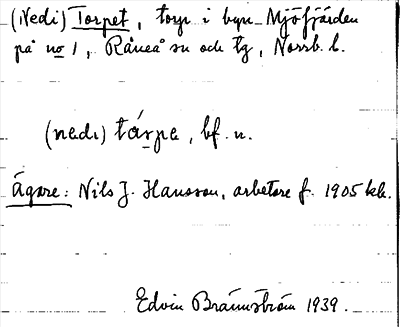 (Nedi) Torpet, torp i byn Mjöfjärden
på no 1, Råneå sn och tg, Norrb. l.
(nedi) tárpe, bf. n.
Ägare: Nils J. Hansson, arbetare f. 1905
Edvin Brännström 1939.